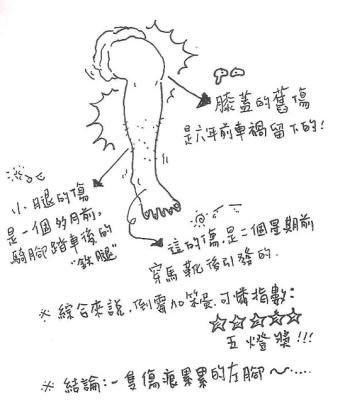 膝蓋的舊傷
是六年前車禍留下的!
小腿的傷
是一個多月前,
騎腳踏車後的
"鉄腿"
這的傷,是二個星期前
穿馬靴後引發的.
※ 綜合來說,倒霉加笨蛋,可憐指數:
☆☆☆☆☆
五燈獎!!!
※ 結論:一隻傷痕累累的左腳～.....